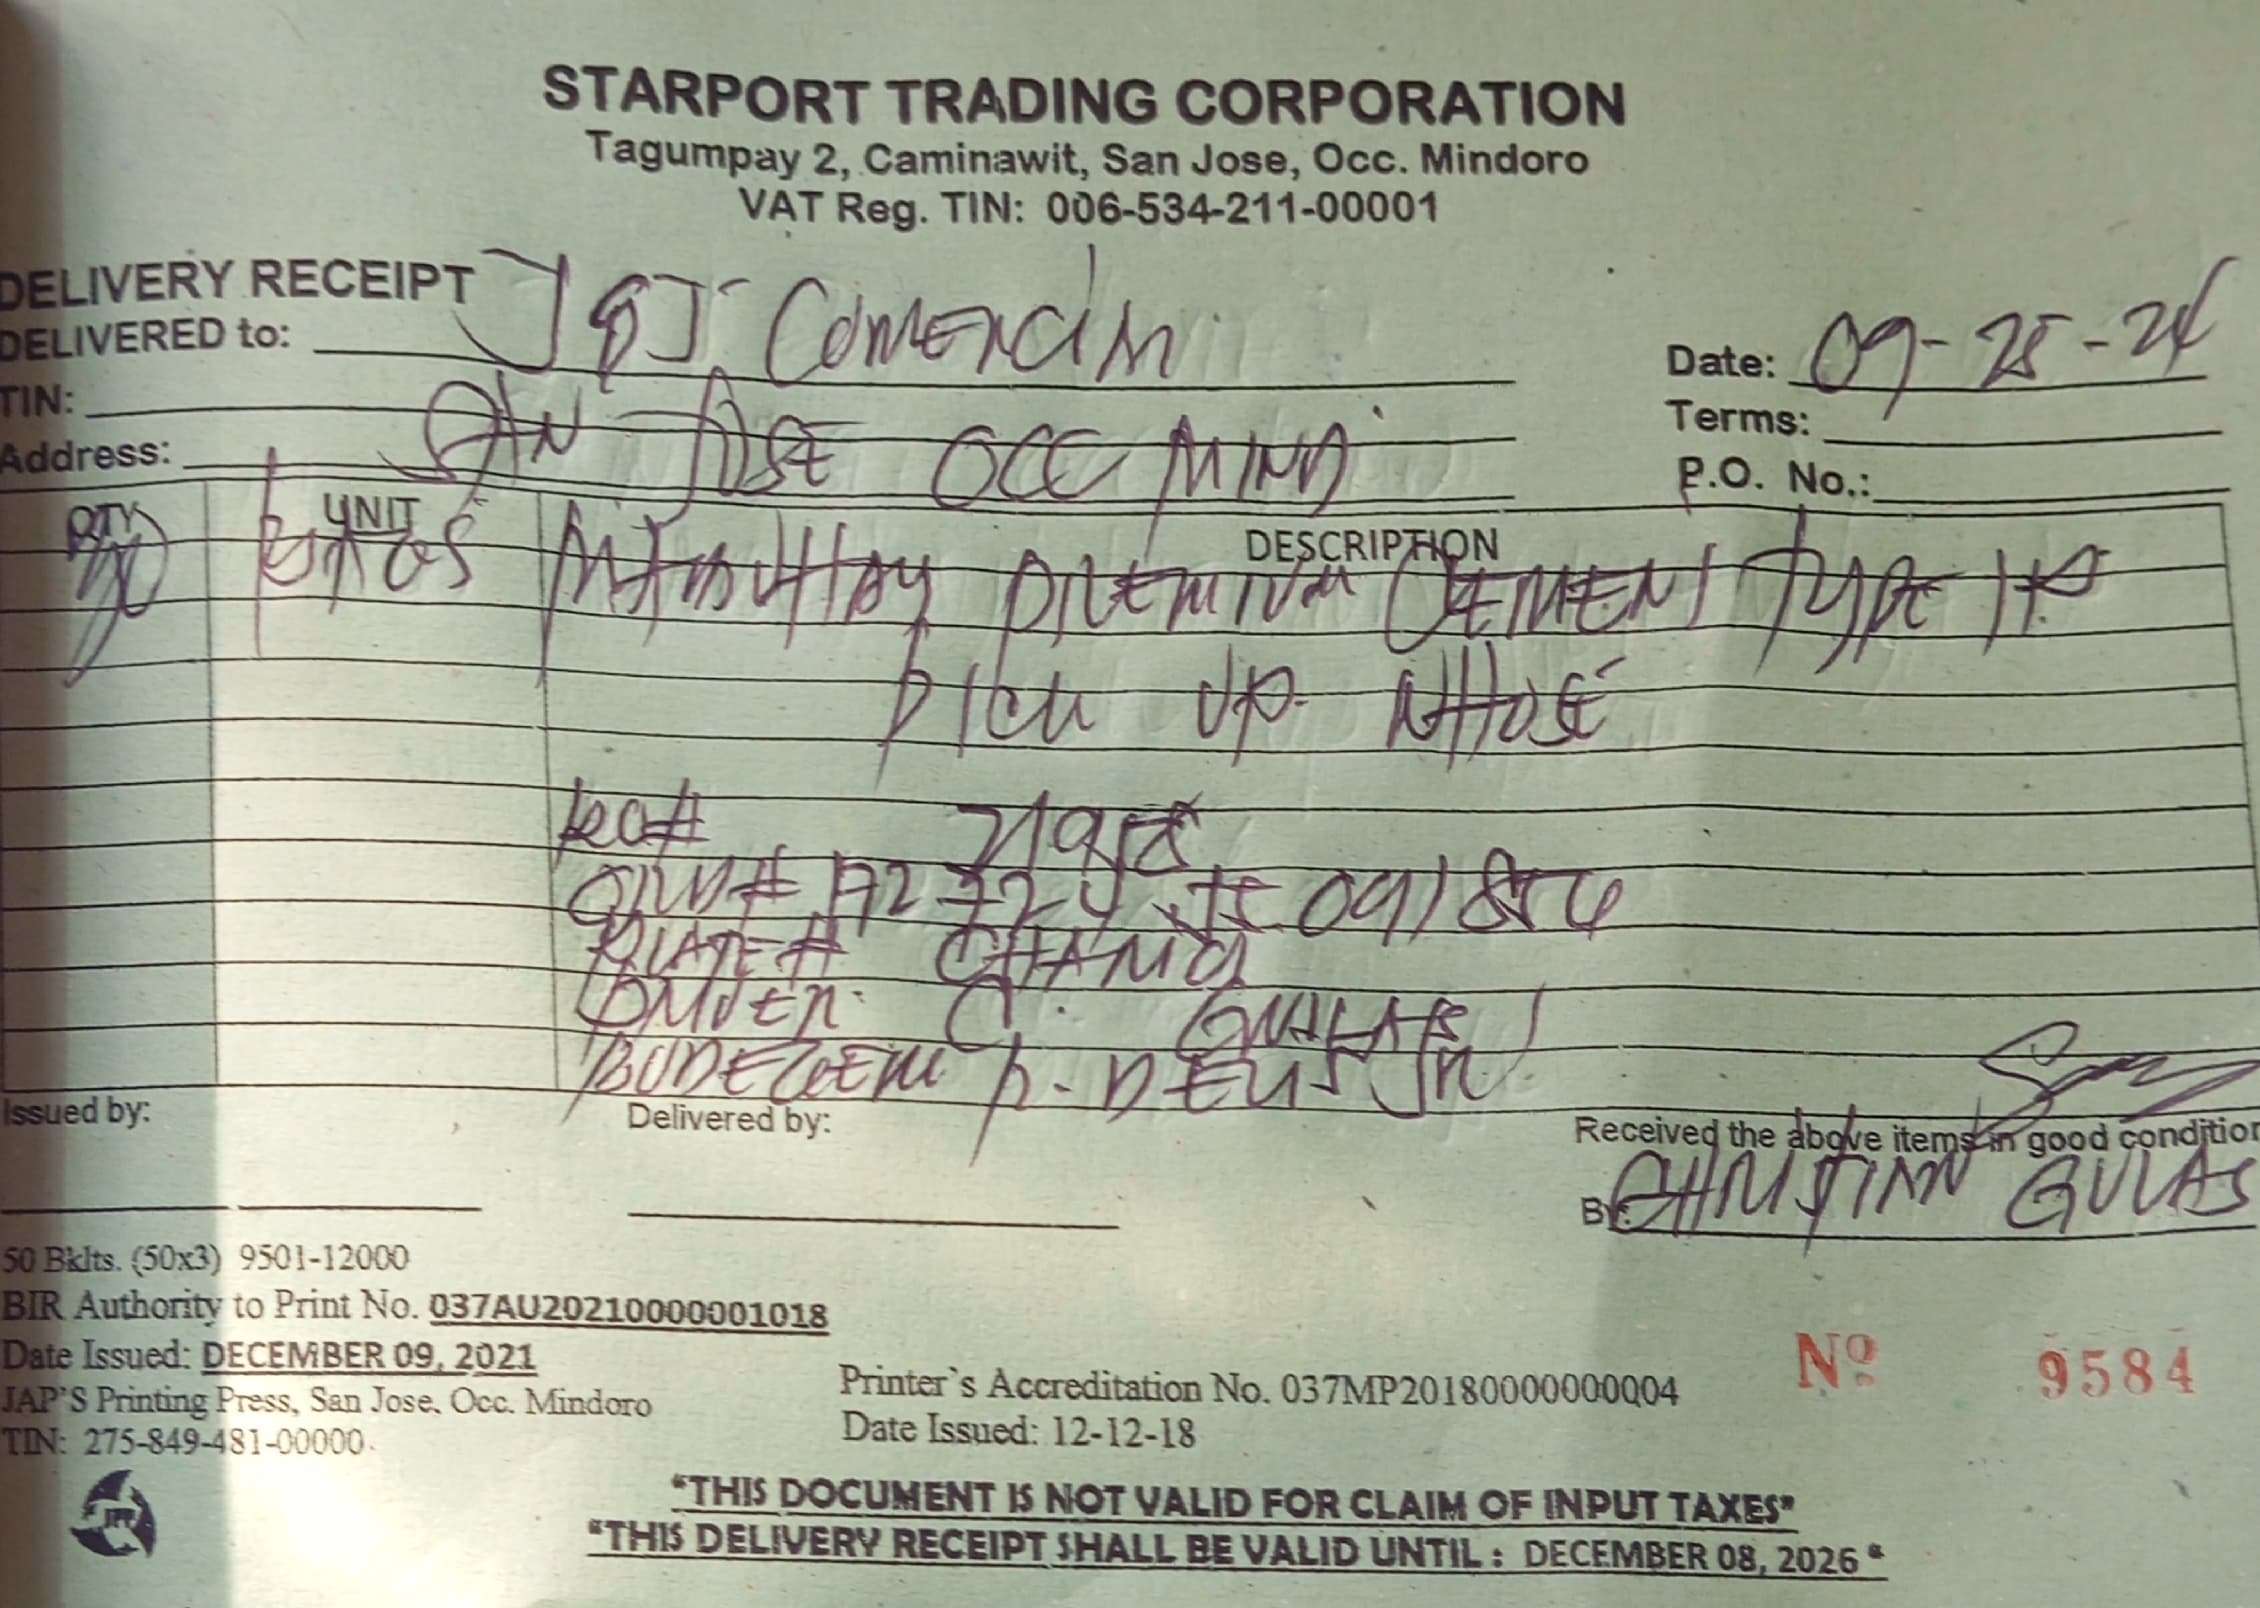 STARPORT TRADING CORPORATION
Tagumpay 2, Caminawit, San Jose, Occ. Mindoro
VAT Reg. TIN: 006-534-211-00001
DELIVERY RECEIPT
DELIVERED to: J&J Comercial
Date: 09-25-24
TIN:
Terms:
Address: SAN JOSE OCC MIND
P.O. No.:
QTY UNIT DESCRIPTION
BAGS PREMIUM CEMENT Type 1P
PICK UP WHOSE
21958
PLATE#
DRIVER C.
BODEGERO
Issued by:
Delivered by:
Received the above items in good condition
By: CHRISTIAN GULAS
50 Bklts. (50x3) 9501-12000
BIR Authority to Print No. 037AU20210000001018
Date Issued: DECEMBER 09, 2021
JAP'S Printing Press, San Jose, Occ. Mindoro
TIN: 275-849-481-00000
Printer`s Accreditation No. 037MP20180000000004
Date Issued: 12-12-18
Nº 9584
JPP
"THIS DOCUMENT IS NOT VALID FOR CLAIM OF INPUT TAXES"
"THIS DELIVERY RECEIPT SHALL BE VALID UNTIL : DECEMBER 08, 2026 "